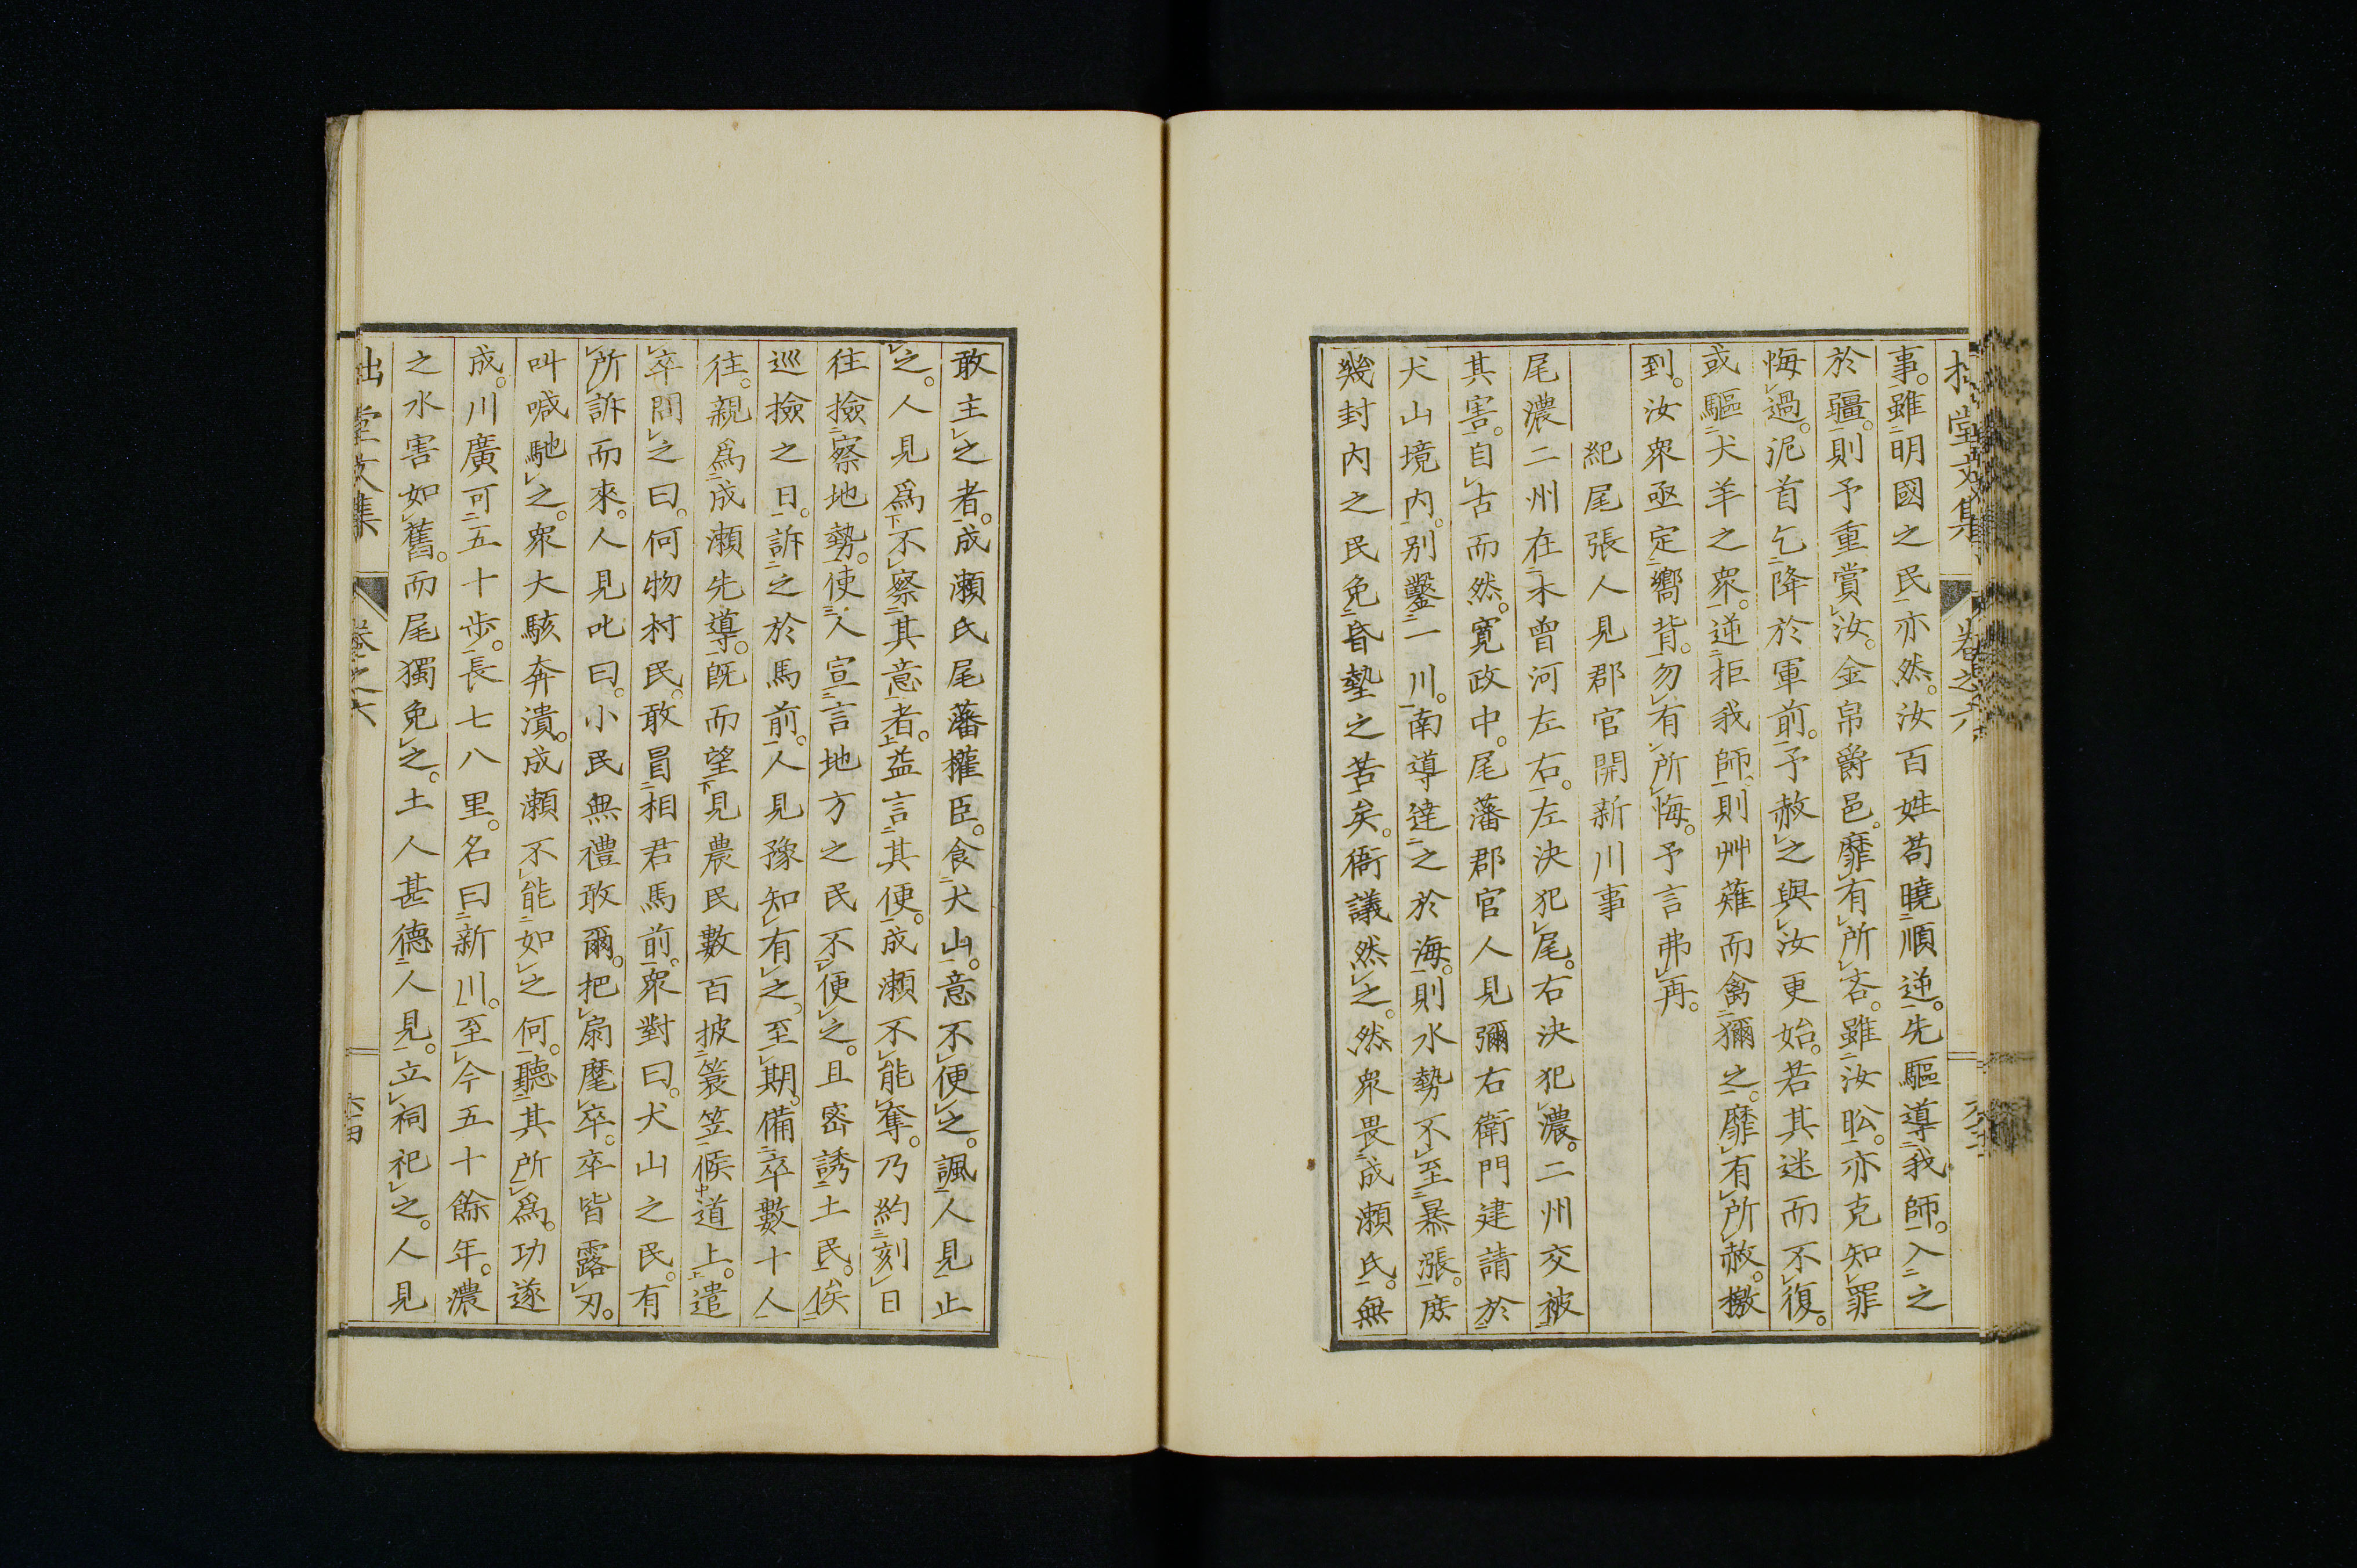 拙堂文集 卷之六
事。雖明國之民亦然。汝百姓苟曉順逆。先驅導我師。入之
於疆。則予重賞汝。金帛爵邑。靡有所吝。雖汝㕬。亦克知罪
悔過。泥首乞降於軍前。予赦之與汝更始。若其迷而不復。
或驅犬羊之衆。逆拒我師。則艸薙而禽獮之。靡有所赦。檄
到。汝衆亟定嚮背。勿有所悔。予言弗再。
紀尾張人見郡官開新川事
尾濃二州在木曾河左右。左決犯尾。右決犯濃。二州交被
其害。自古而然。寬政中。尾藩郡官人見彌右衛門建請於
犬山境内。別鑿一川。南導達之於海。則水勢不至暴漲。庶
幾封内之民免昏墊之苦矣。衙議然之。然衆畏成瀨氏。無
敢主之者。成瀨氏尾藩權臣。食犬山。意不便之。諷人見止
之。人見爲不察其意者。益言其便。成瀨不能奪。乃約刻日
往撿察地勢。使人宣言地方之民不便之。且密誘土民。俟
巡撿之日。訴之於馬前。人見豫知有之。至期。備卒數十人
往。親爲成瀨先導。既而望見農民數百披簑笠候道上。遣
卒問之曰。何物村民。敢冒相君馬前。衆對曰。犬山之民。有
所訴而來。人見叱曰。小民無禮敢爾。把扇麾卒。卒皆露刃。
叫喊馳之。衆大駭奔潰。成瀨不能如之何。聽其所爲。功遂
成。川廣可五十步。長七八里。名曰新川。至今五十餘年。濃
之水害如舊。而尾獨免之。土人甚德人見。立祠祀之。人見
拙堂文集 卷之六 六十四